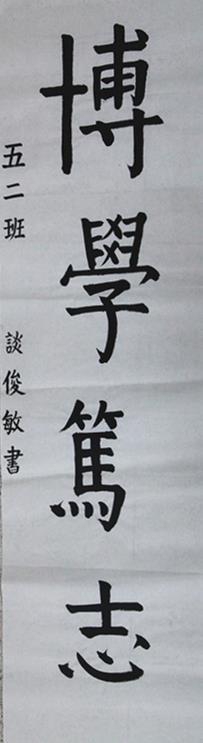 博學篤志
五二班 談俊敏書